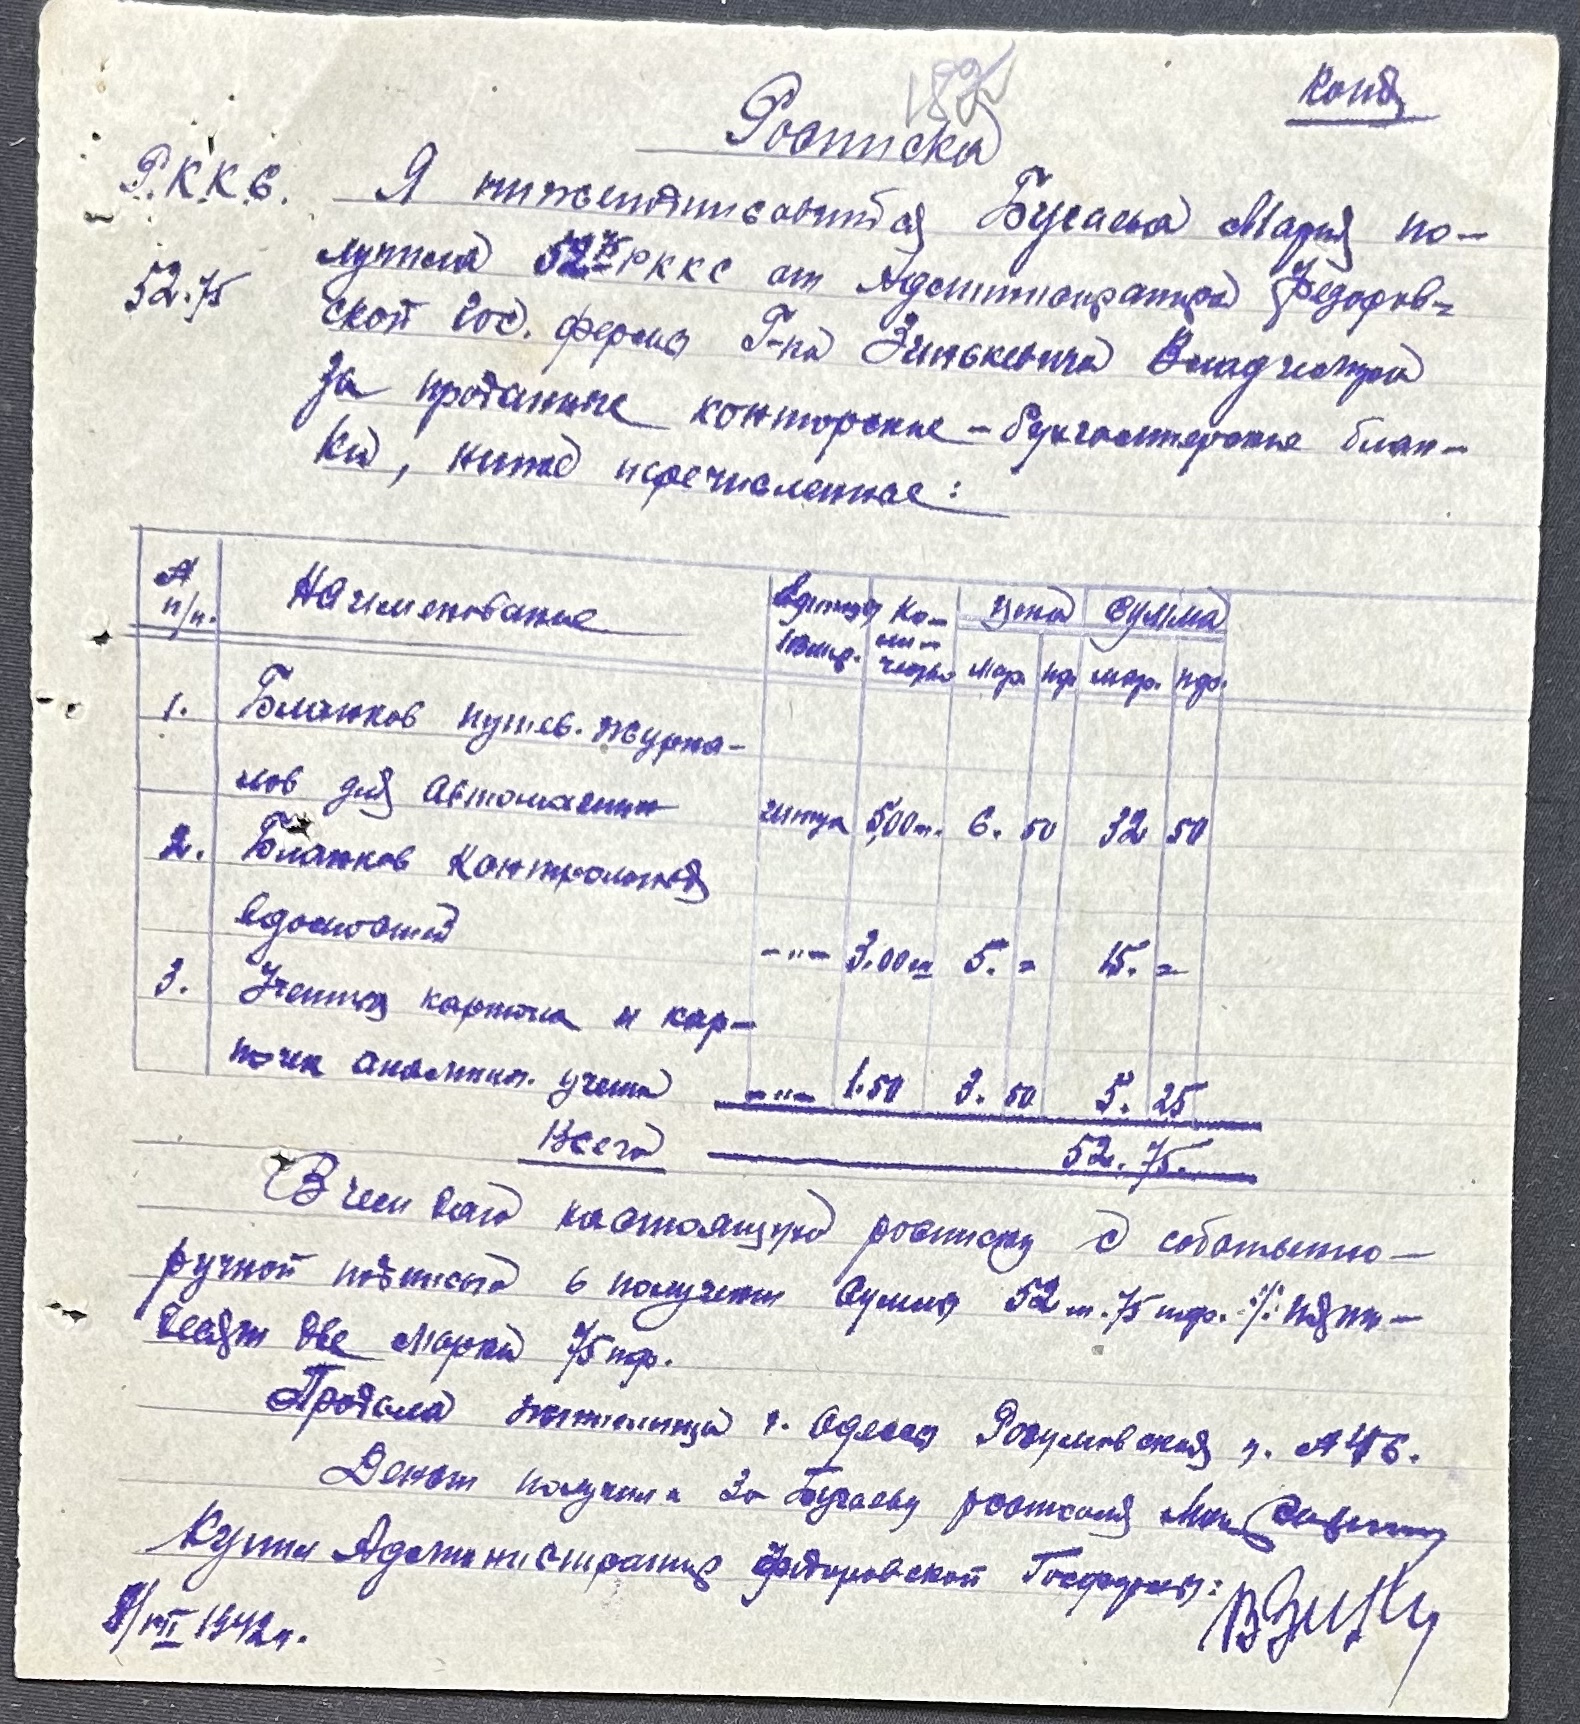 187
Копия
Росписка
Р.К.К.С. Я нижеподписавшаяся Бугаева Мария по-
52.75 лучила 52.75 РККС от Администратора Федоров-
ской гос. фермы Г-на Зинькевича Владимира
За проданные конторские-бухгалтерские блан-
ки, ниже перечисленные:
№ п/п. Наименование Единица измер. Ко-ли-чество Цена Сумма
мар. пф. мар. пф.
1. Бланков путев. журна-
лов для автомашин штук 500 6. 50 32 50
2. Бланков контрольная
ведомостей -"- 3.00 5. = 15. =
3. Учетная карточка и кар-
точек аналитич. учета -"- 1.50 3. 50 5. 25
Всего 52. 75.
В чем даю настоящую росписку с собственно-
ручной подписью в получении суммы 52 м. 75 пф. /пять-
десят две марки 75 пф.
Продала жительница г. Одессы п. № 46.
Деньги получила за Бугаеву
Купил Администрация Федоровской Госфермы:
VIII 1942 г.